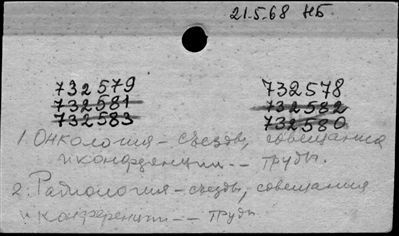 21.5.68 НБ
732579 732578
732581 732582
732583 732580
1. Онкология - съезды, совещания
и конференции -- труды.
2. Радиология - съезды, совещания
и конференции -- труды